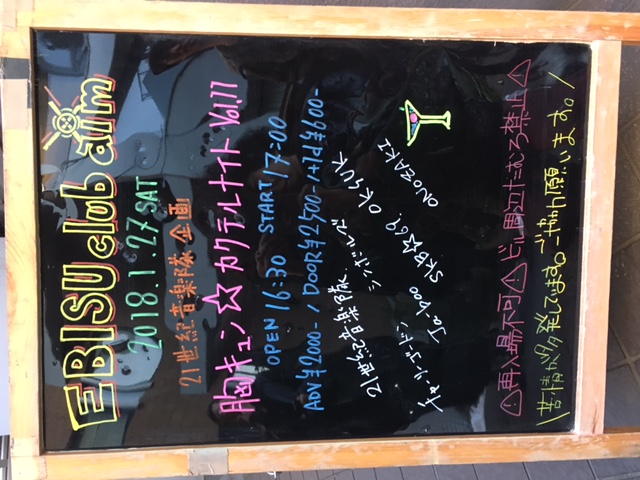 EBISU club aim
2018.1.27 SAT
21世紀音楽隊 企画
胸キュン☆カクテルナイト Vol.11
OPEN 16:30 START 17:00
ADV ¥2000- / DOOR ¥2500- / +1d ¥600-
21世紀音楽隊 シンボルズ
チャーリーゴードン Ja-boo SKB☆69. OKSUK
ONOZAKI
⚠再入場不可⚠ビル周辺たむろ禁止⚠
\苦情が多発しています。ご協力願います。/